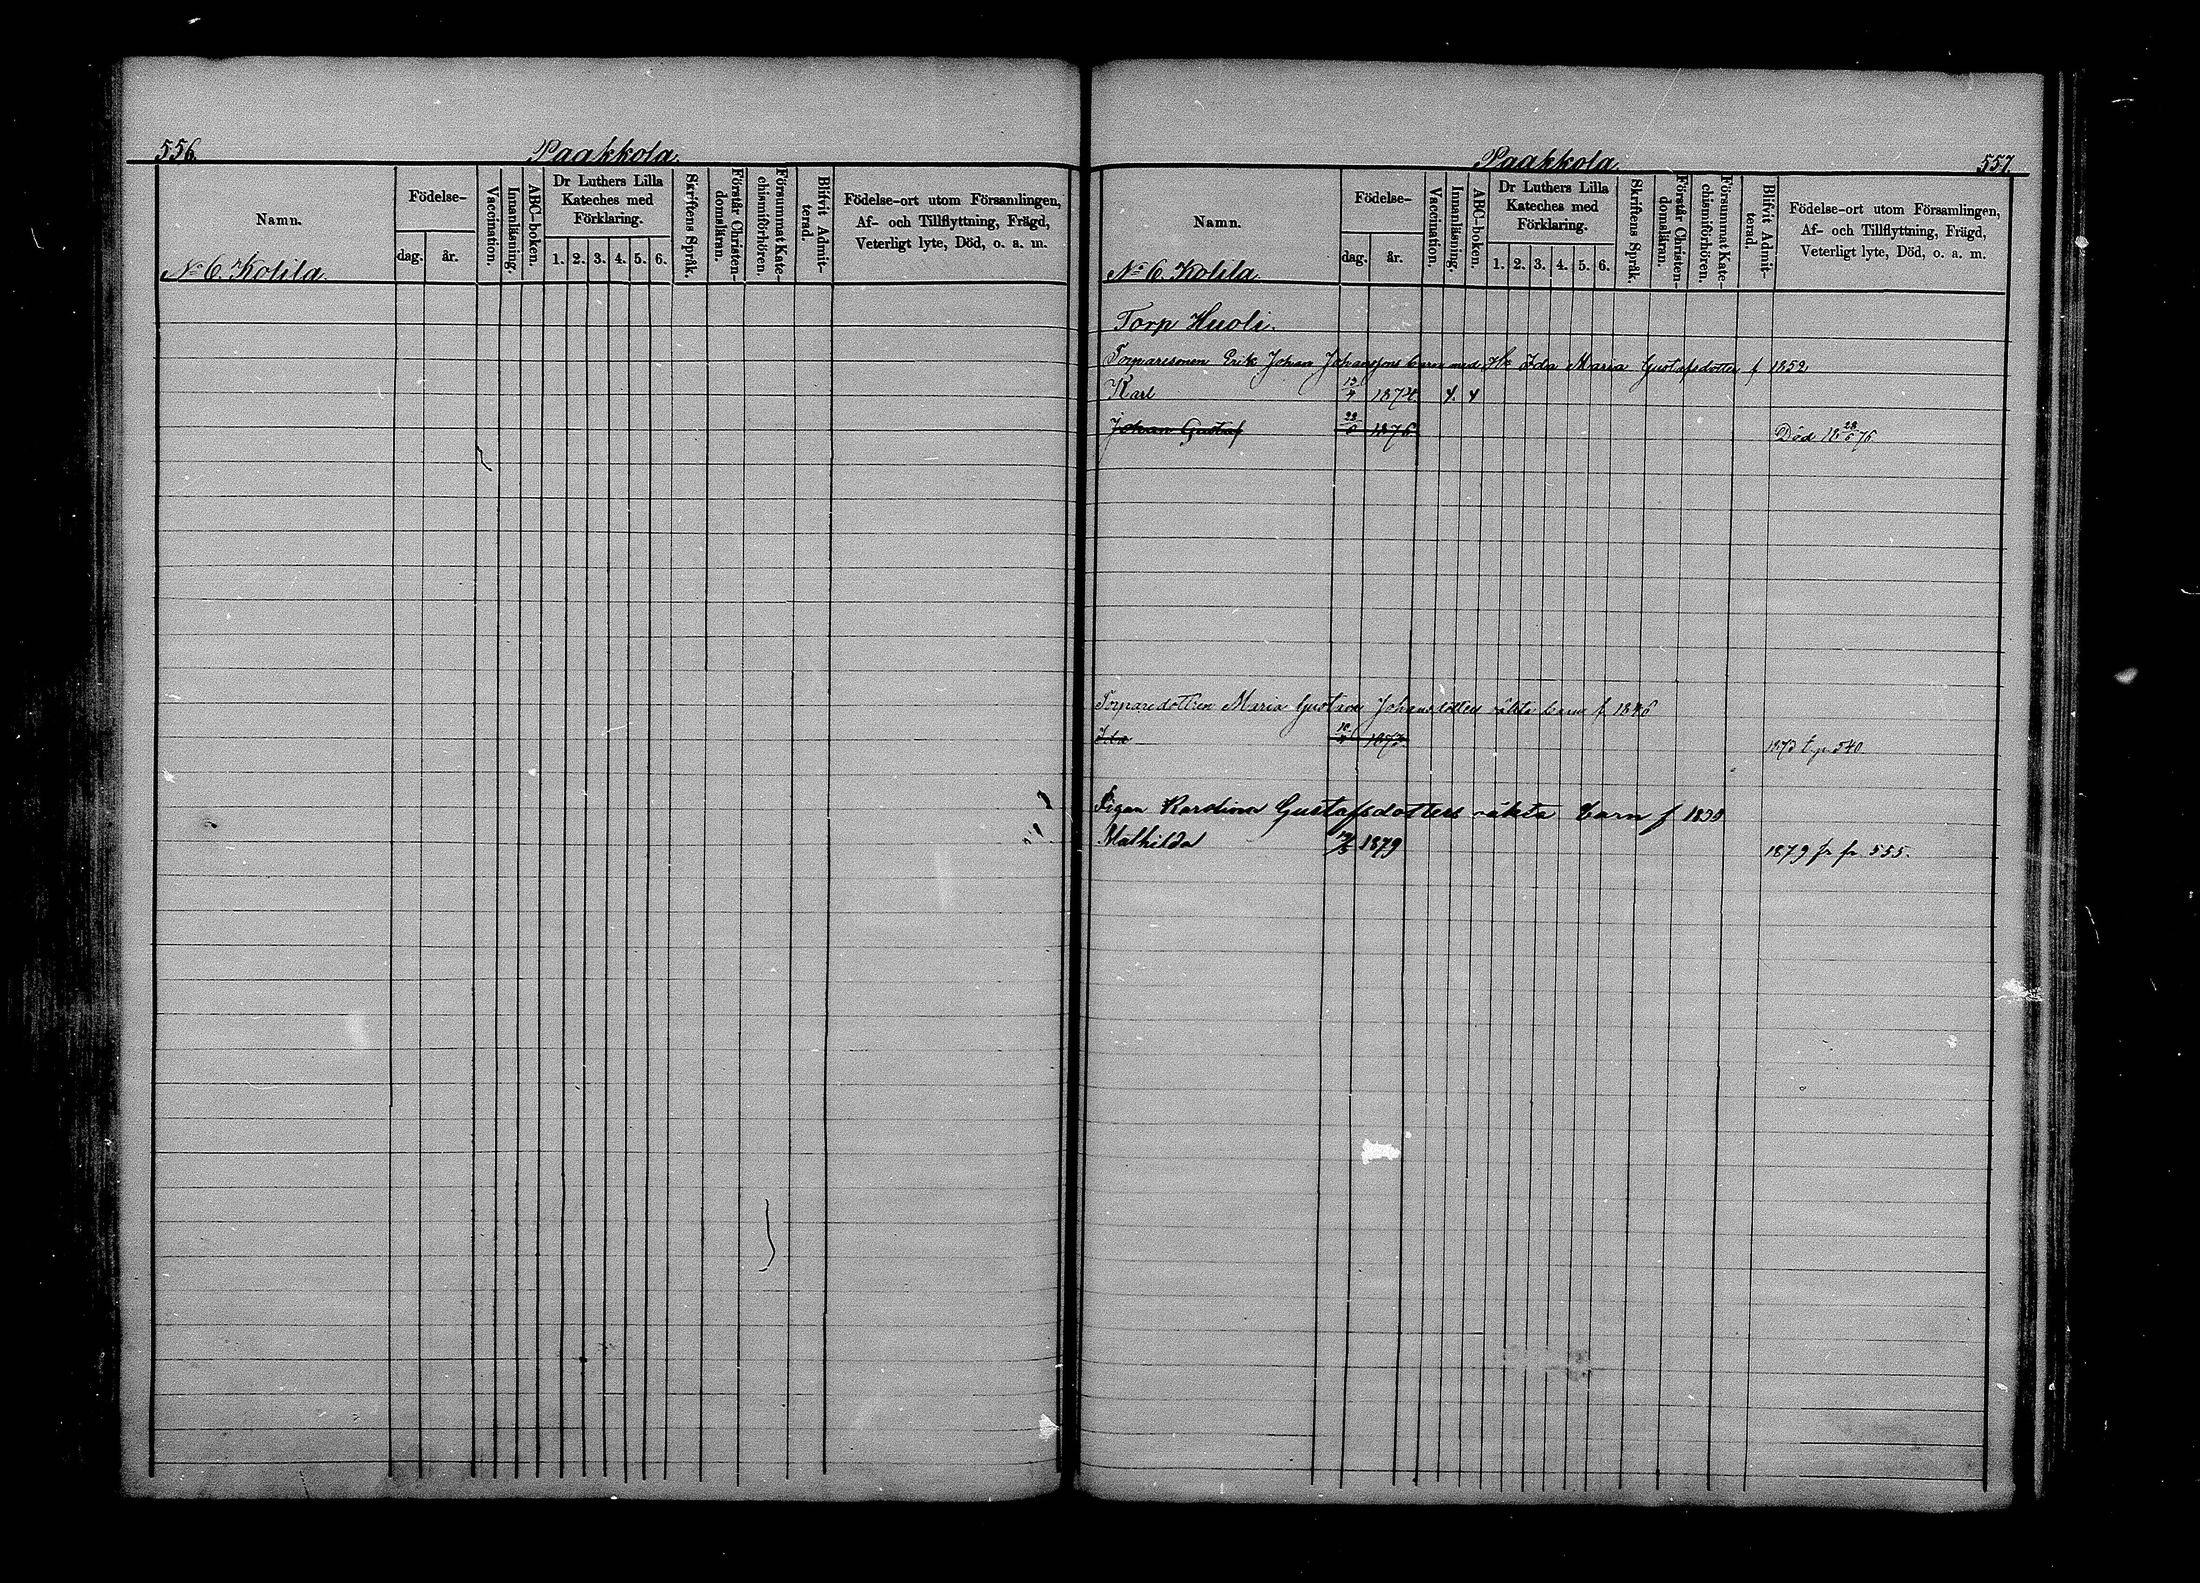 556. Paakkola.
Namn. Födelse- dag. år. Vaccination. Innanläsning. ABC-boken. Dr Luthers Lilla Kateches med Förklaring. 1. 2. 3. 4. 5. 6. Skriftens Språk. Förstår Christendomsläran. Försummat Katechismiförhören. Blifvit Admitterad. Födelse-ort utom Församlingen, Af- och Tillflyttning, Frägd, Veterligt lyte, Död, o. a. m.
No 6. Kolila.
Paakkola. 557.
Namn. Födelse- dag. år. Vaccination. Innanläsning. ABC-boken. Dr Luthers Lilla Kateches med Förklaring. 1. 2. 3. 4. 5. 6. Skriftens Språk. Förstår Christendomsläran. Försummat Katechismiförhören. Blifvit Admitterad. Födelse-ort utom Församlingen, Af- och Tillflyttning, Frägd, Veterligt lyte, Död, o. a. m.
No 6 Kolila.
Torp Huoli.
Torparesonen Erik Johan Johanssons barn med Ida Maria Gustafsdotter f 1852
Karl 1874
Johan Gustaf 1876 Död 18 28/6 76
Torparedottren Maria Gustava Johansdotters oäkta barn f. 1846
Ida 1873 540
Pigan Karolina Gustafsdotters oäkta barn f 1838
Mathilda 1879 1879 fr fr 555.